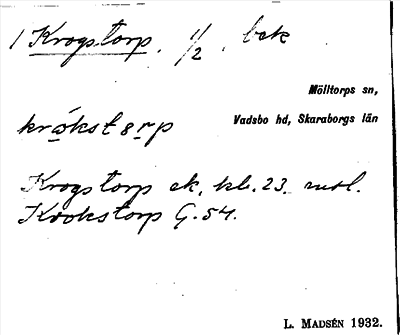 1 Krogstorp. 1/2, bek
Mölltorps sn,
Vadsbo hd, Skaraborgs län
krɷkst8rp
Krogstorp ek. kb. 23. mtl.
Krokstorp G. 54.
L. MADSÉN 1932.